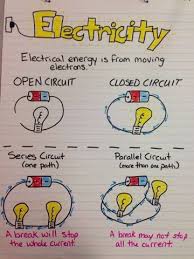 Electricity
Electrical energy is from moving
electrons.
OPEN CIRCUIT
CLOSED CIRCUIT
Series Circuit
(one path)
Parallel Circuit
(more than one path)
A break will stop
the whole current.
A break may not stop
all the current.